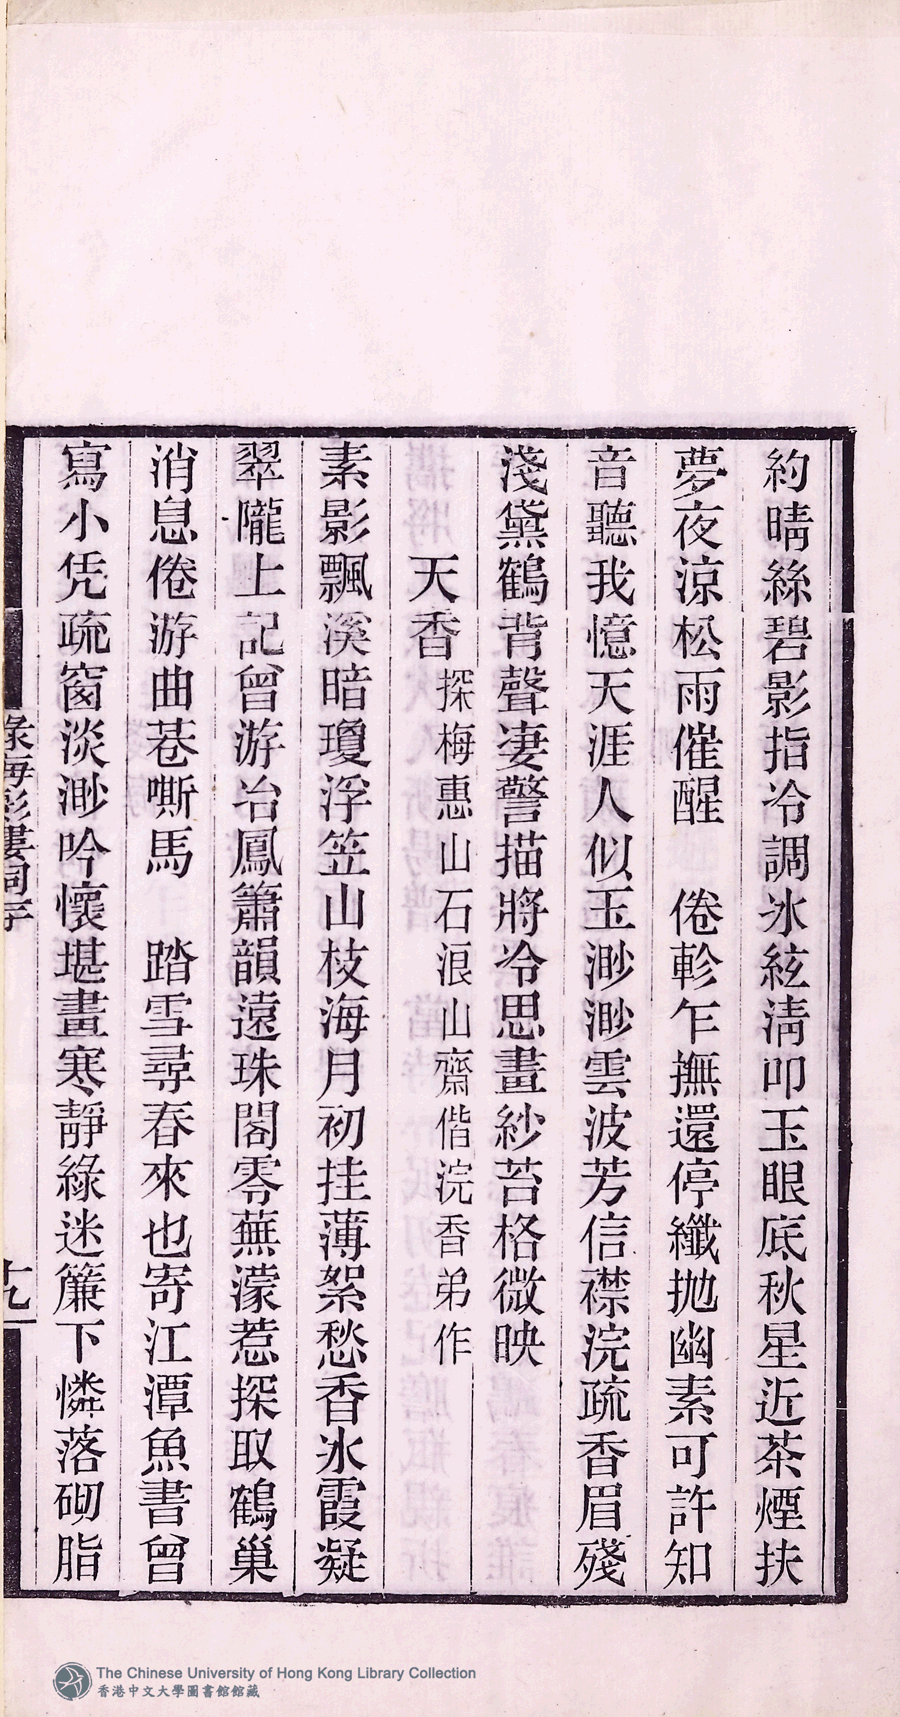 約晴絲碧影指冷調冰絃淸叩玉眼底秋星近茶煙扶
夢夜涼松雨催醒　倦軫乍撫還停纖抛幽素可許知
音聽我憶天涯人似玉渺渺雲波芳信襟浣疏香眉殘
淺黛鶴背聲凄警描將冷思畫紗苔格微映
天香 探梅惠山石浪山齋偕浣香弟作
素影飄溪暗瓊浮笠山枝海月初挂薄絮愁香冰霞凝
翠隴上記曾游冶鳳簫韻遠珠閣零蕪濛惹探取鶴巢
消息倦游曲巷嘶馬　踏雪尋春來也寄江潭魚書曾
寫小凭疏窗淡渺吟懷堪畫寒靜綠迷簾下憐落砌脂
十九
The Chinese University of Hong Kong Library Collection
香港中文大學圖書館館藏